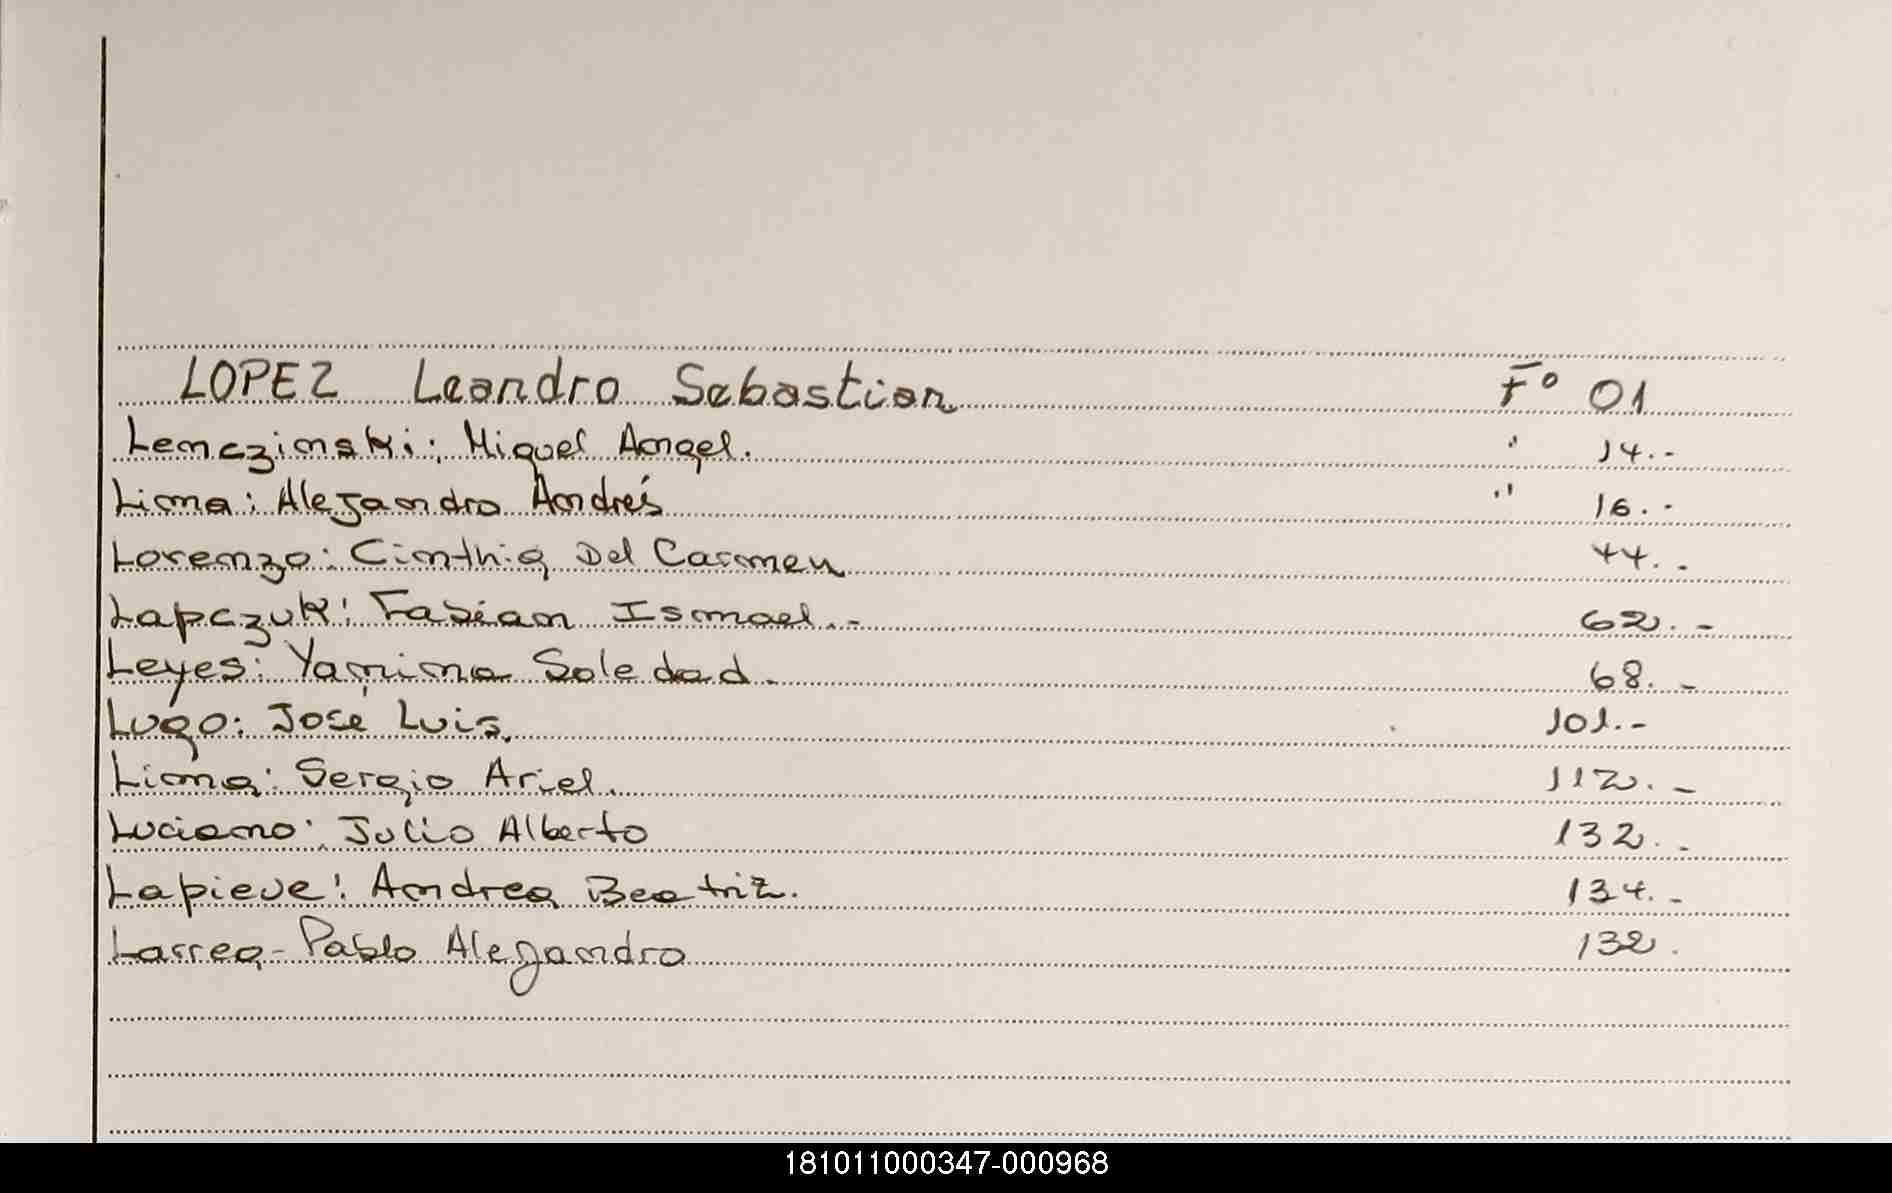 LOPEZ Leandro Sebastian F° 01
Lenczinski; Miguel Angel. " 14.-
Lima: Alejandro Andrés " 16.-
Lorenzo: Cinthia Del Carmen 44.-
Lapczuk: Fabian Ismael.- 62.-
Leyes: Yanina Soledad. 68.-
Lugo: José Luis. 101.-
Lima: Sergio Ariel. 112.-
Luciano: Julio Alberto 132.-
Lapieve: Andrea Beatriz. 134.-
Larrea- Pablo Alejandro 132.
181011000347-000968